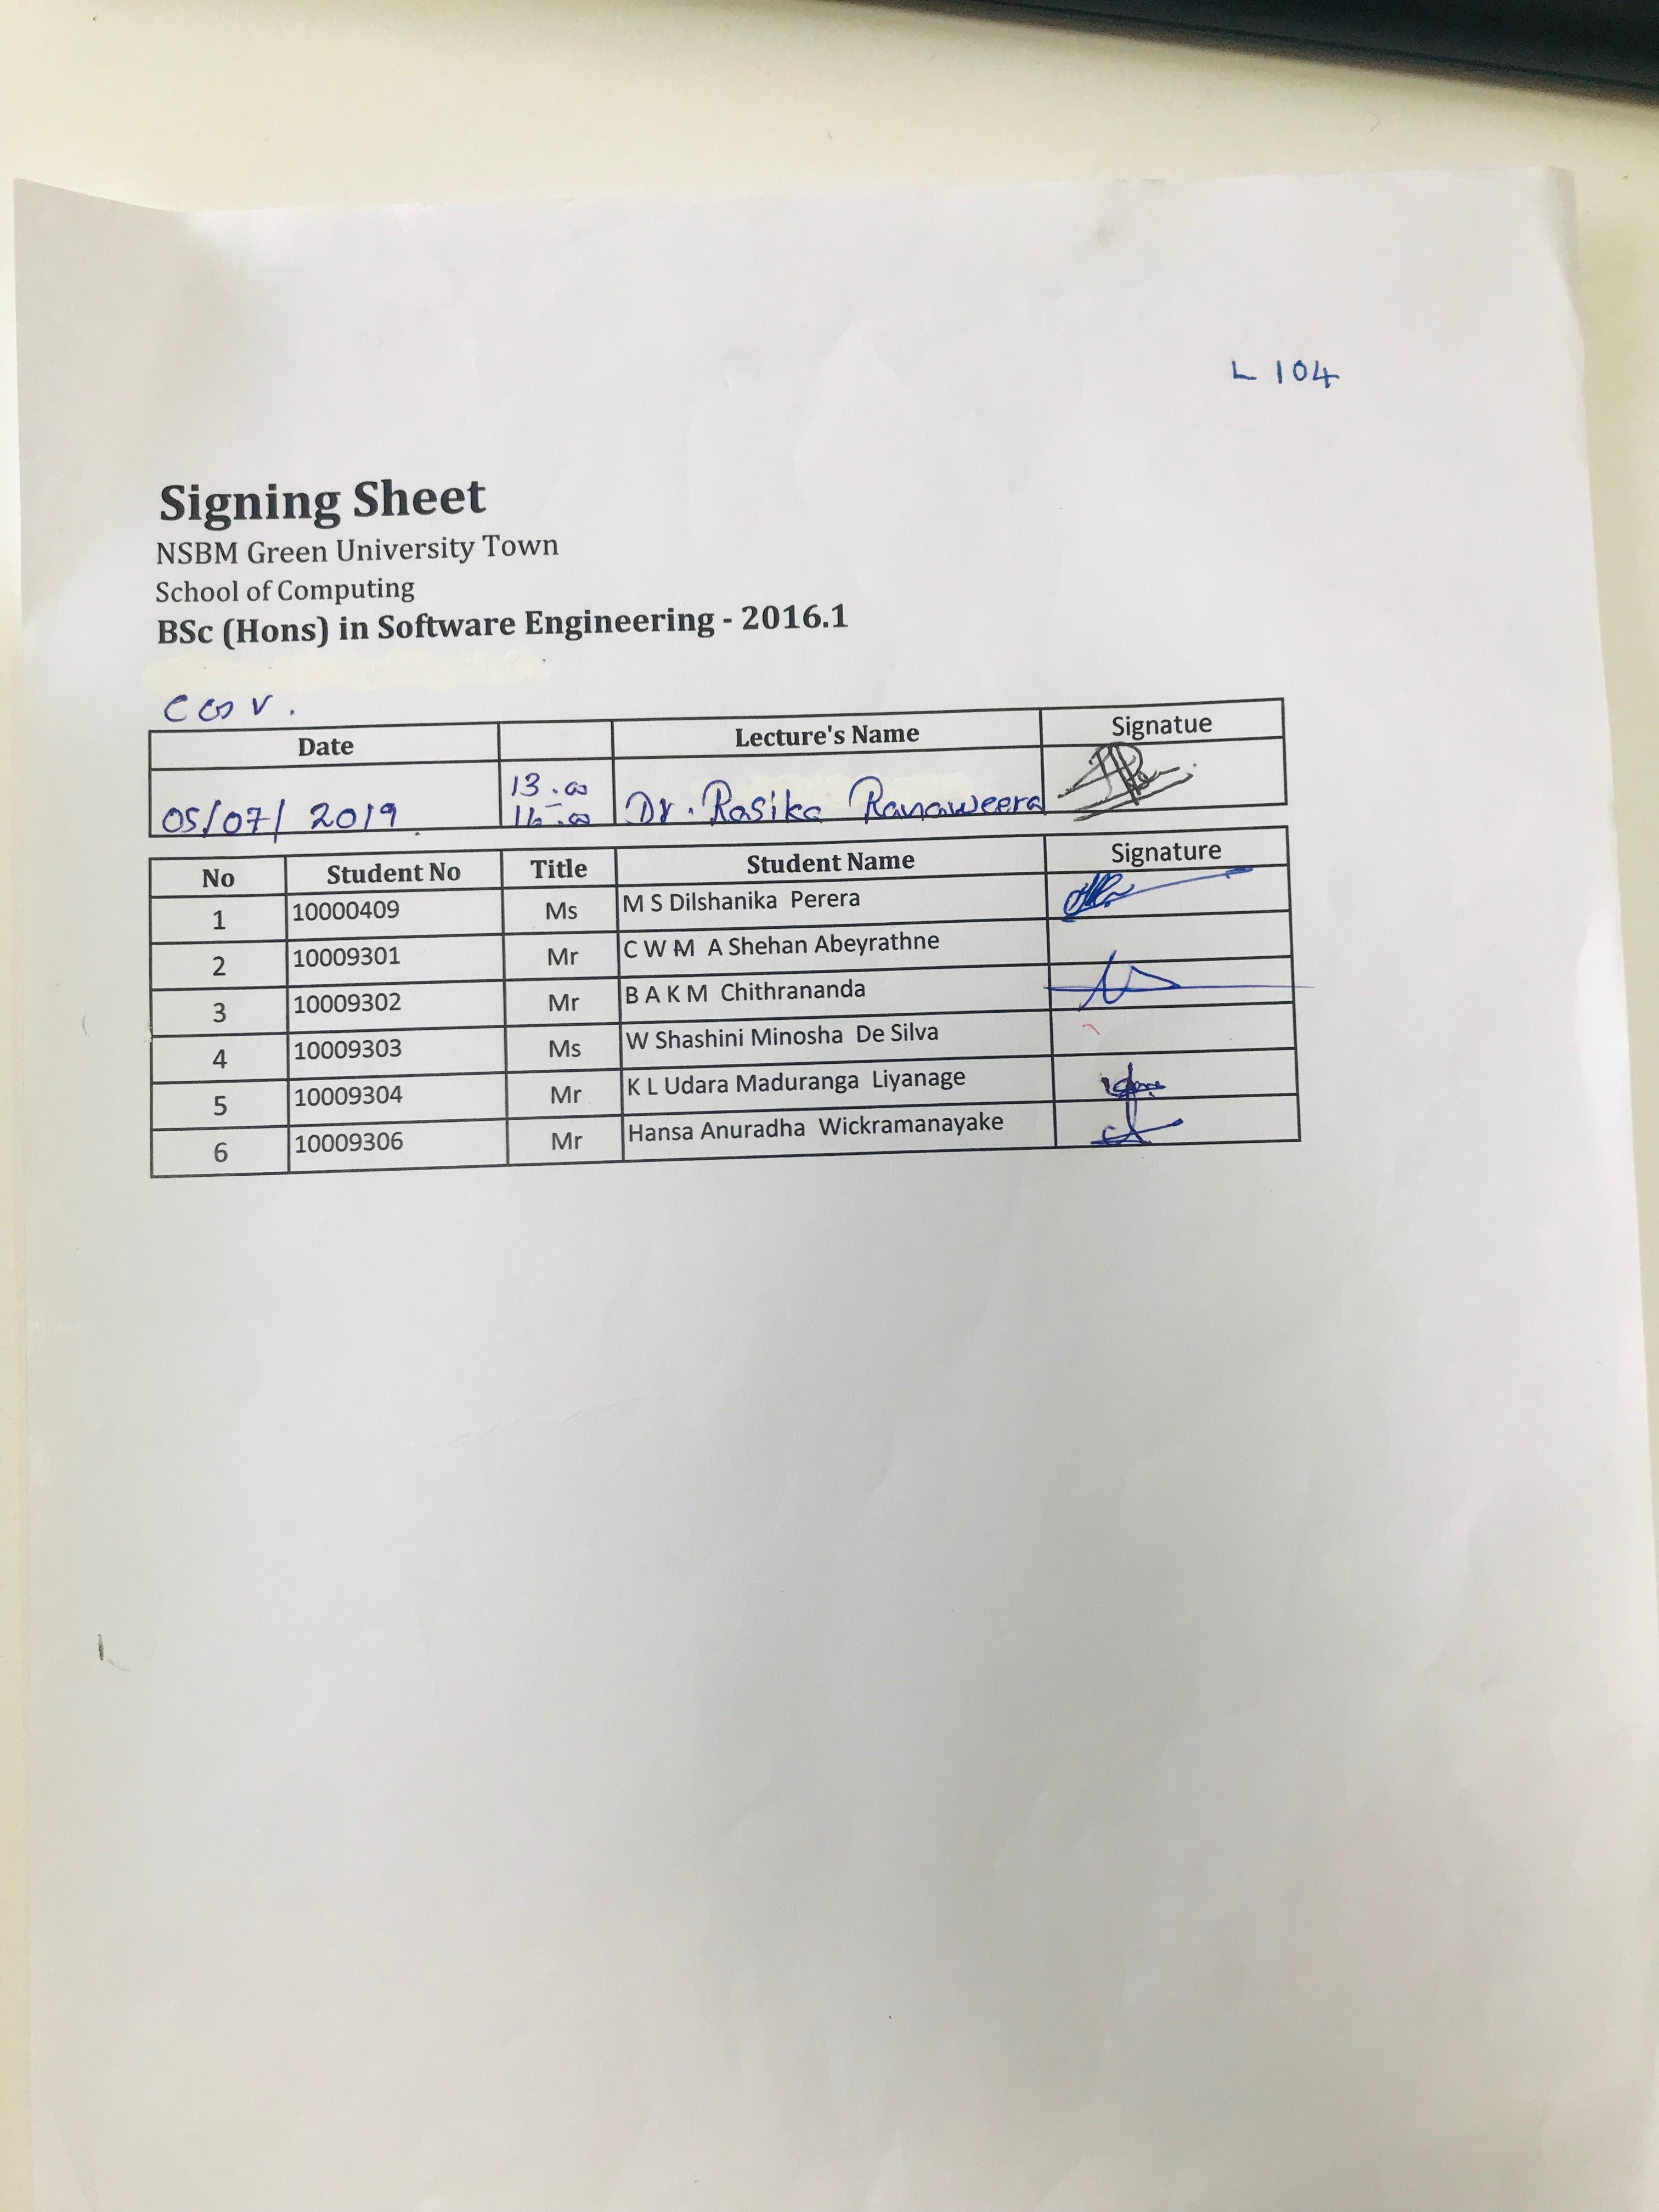 L 104
Signing Sheet
NSBM Green University Town
School of Computing
BSc (Hons) in Software Engineering - 2016.1
Date Lecture's Name Signatue
13.00
05/07/2019 Dr. Rasika Ranaweera
No Student No Title Student Name Signature
1 10000409 Ms M S Dilshanika Perera
2 10009301 Mr C W M A Shehan Abeyrathne
3 10009302 Mr B A K M Chithrananda
4 10009303 Ms W Shashini Minosha De Silva
5 10009304 Mr K L Udara Maduranga Liyanage
6 10009306 Mr Hansa Anuradha Wickramanayake